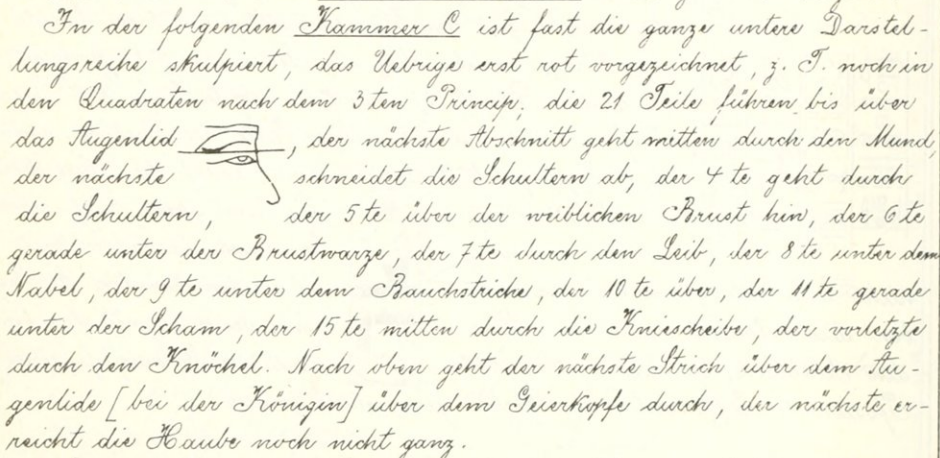 In der folgenden Kammer C ist fast die ganze untere Darstel-
lungsreihe skulpiert, das Uebrige erst rot vorgezeichnet, z. T. noch in
den Quadraten nach dem 3ten Princip; die 21 Teile führen bis über
das Augenlid, der nächste Abschnitt geht mitten durch den Mund,
der nächste schneidet die Schultern ab, der 4te geht durch
die Schultern, der 5te über der weiblichen Brust hin, der 6te
gerade unter der Brustwarze, der 7te durch den Leib, der 8te unter dem
Nabel, der 9te unter dem Bauchstriche, der 10te über, der 11te gerade
unter der Scham, der 15te mitten durch die Kniescheibe, der vorletzte
durch den Knöchel. Nach oben geht der nächste Strich über dem Au-
genlide [bei der Königin] über dem Geierkopfe durch, der nächste er-
reicht die Haube noch nicht ganz.